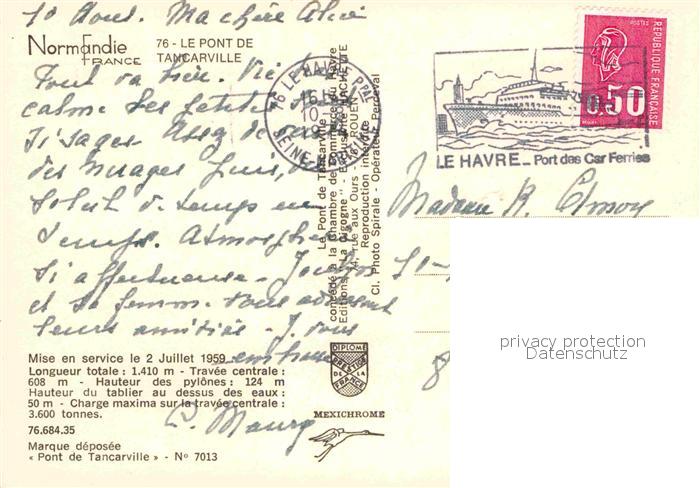 10 Aout. Ma chère Alice
Normandie
FRANCE
76 - LE PONT DE
TANCARVILLE
Tout va bien. Vie
calme
des nuages puis,
Soleil de temps en
temps. Atmosphère
si affectueuse -
et sa femme vous
leurs amitiés - Je vous
embrasse
Mise en service le 2 Juillet 1959
Longueur totale : 1.410 m - Travée centrale :
608 m - Hauteur des pylônes : 124 m
Hauteur du tablier au dessus des eaux :
50 m - Charge maxima sur la travée centrale :
3.600 tonnes.
76.684.35
Marque déposée
« Pont de Tancarville » - No 7013
Le Pont de Tancarville
concédé à la Chambre de Commerce du Havre
Editions "La Cigogne" - Exclusivité HACHETTE
74, rue aux Ours - 76 ROUEN
Reproduction interdite
Cl. Photo Spirale - Opérateur Perceval
DIPLOME
PRESTIGE
DE LA
FRANCE
MEXICHROME
76 LE HAVRE Ppal
SEINE-MARITIME
LE HAVRE_ Port des Car Ferries
REPUBLIQUE FRANÇAISE
0,50
Madame R.
privacy protection
Datenschutz